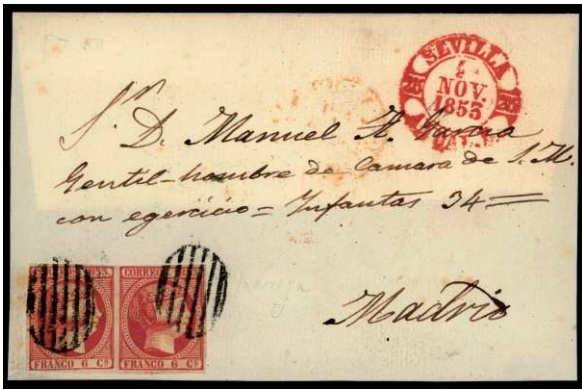 SEVILLA
NOV.
1853
Sr. D. Manuel A. Garcia
Gentil-hombre de Camara de S. M.
con egercicio = Infantas 34 =
Madrid
CORREOS
CORREOS
FRANCO 6 Cs
FRANCO 6 Cs